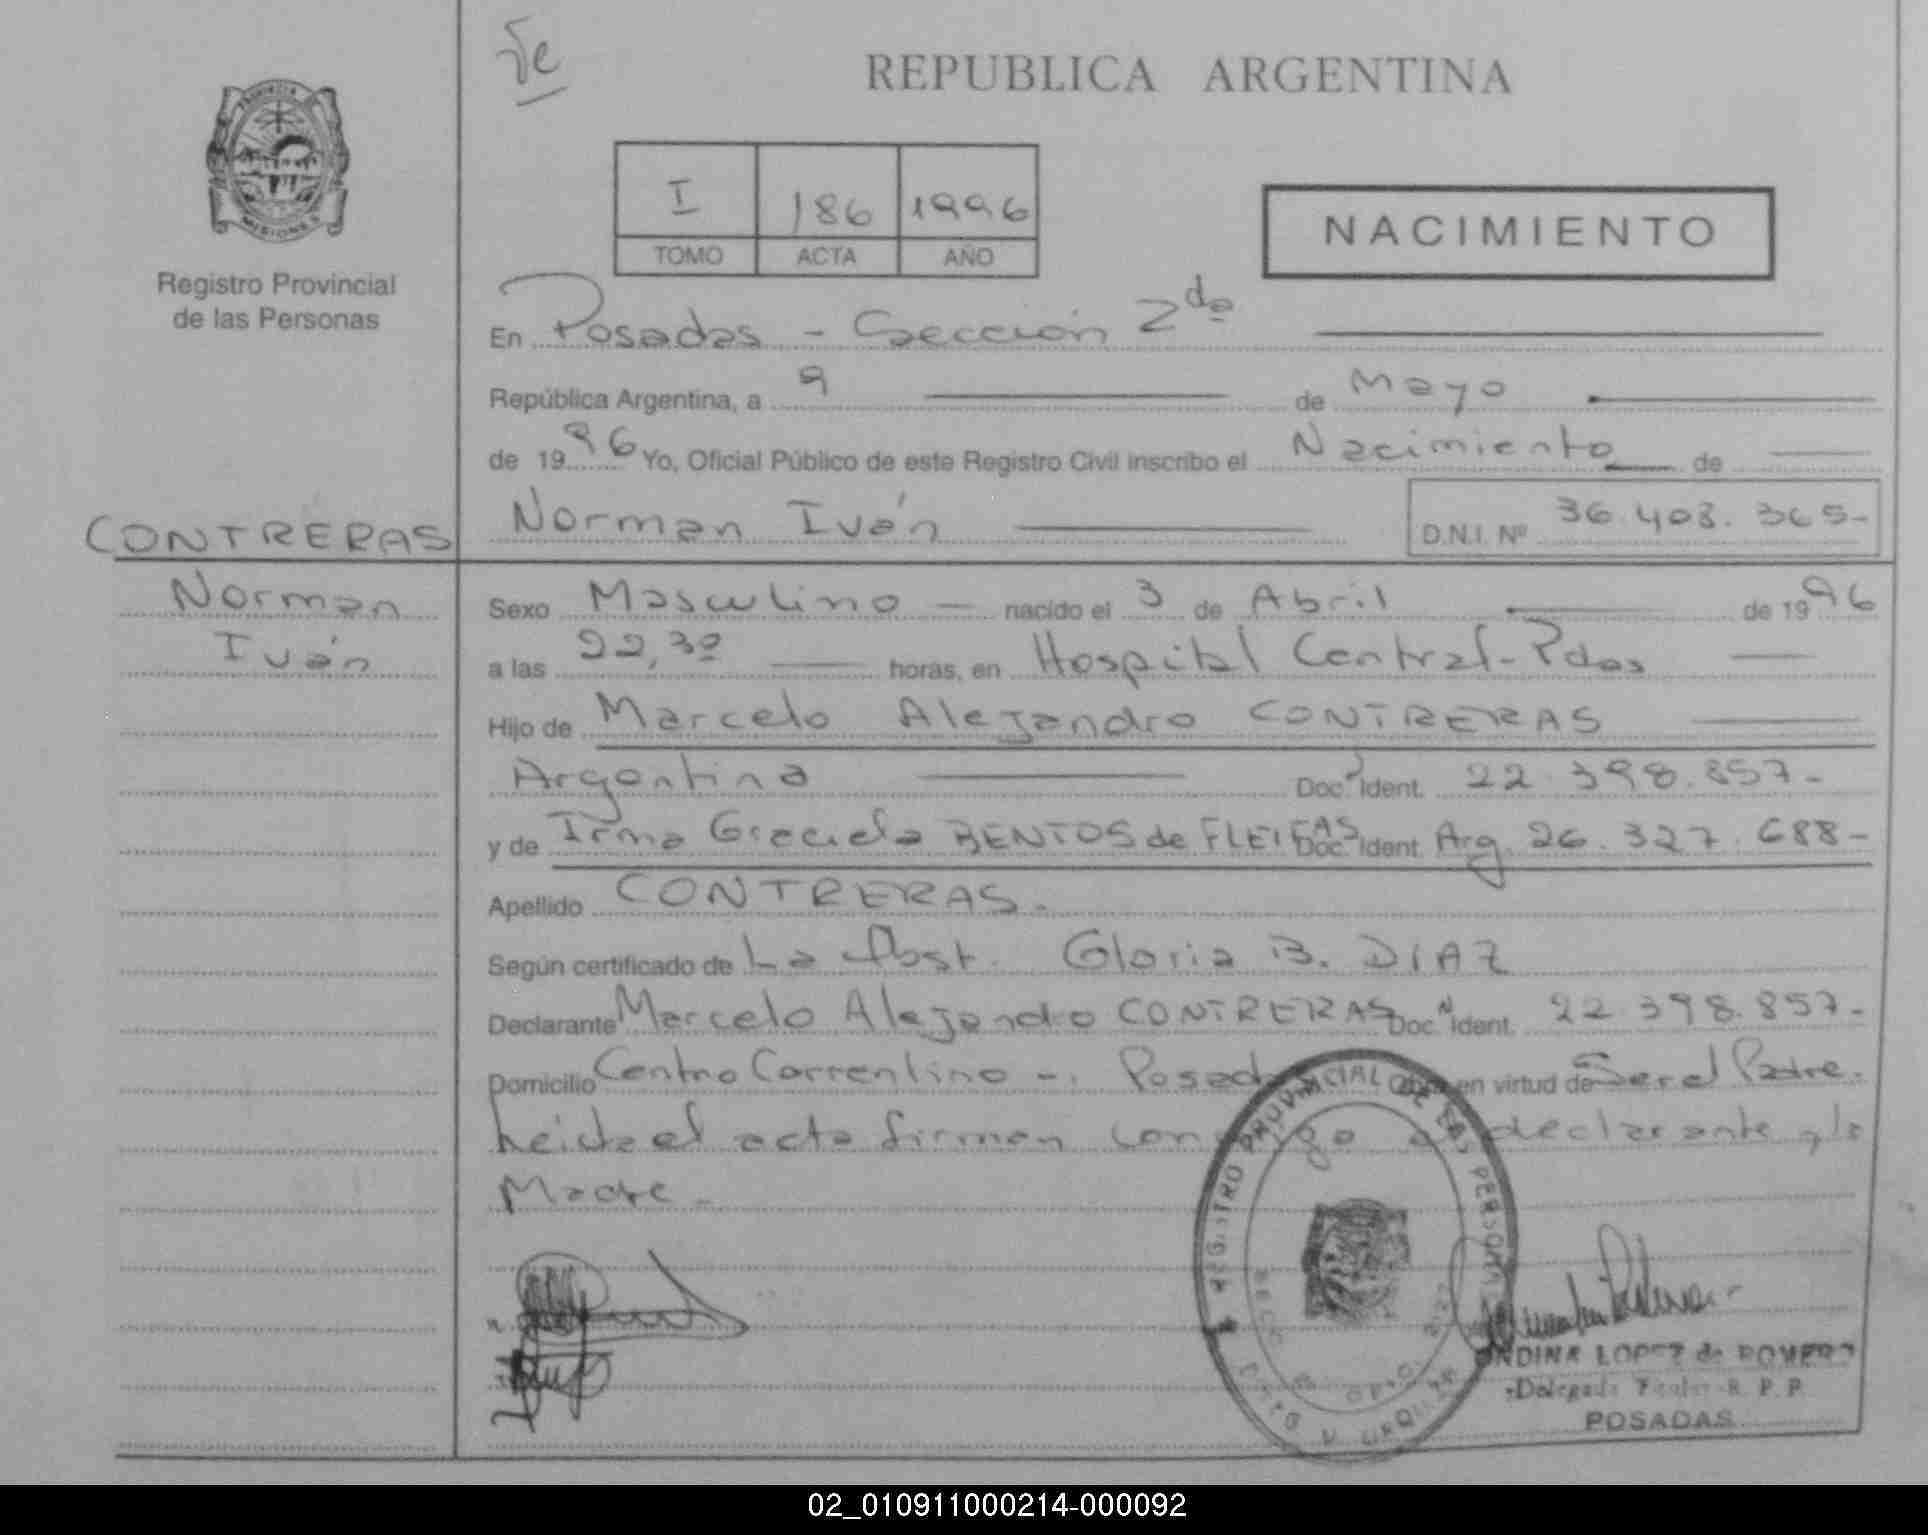 REPUBLICA ARGENTINA
PROVINCIA
MISIONES
Registro Provincial
de las Personas
I 186 1996
TOMO ACTA AÑO
NACIMIENTO
En Posadas - Sección 2da
República Argentina, a 9 de Mayo
de 1996 Yo, Oficial Público de este Registro Civil inscribo el Nacimiento de
Norman Iván D.N.I. Nº 36.408.365-
CONTRERAS
Norman
Iván
Sexo Masculino nacido el 3 de Abril de 1996
a las 22,30 horas, en Hospital Central-Pdas
Hijo de Marcelo Alejandro CONTRERAS
Argentina Doc. Ident. 22.398.857-
y de Irma Graciela BENTOS de Doc. Ident. Arg. 26.327.688-
Apellido CONTRERAS.
Según certificado de La Obst. Gloria B. DIAZ
Declarante Marcelo Alejandro CONTRERAS Doc. Ident. 22.398.857-
Domicilio Centro Correntino -. Posadas Obra en virtud de Ser el Padre.
Leida el acta firman conmigo el declarante y la
Madre -
REGISTRO PROVINCIAL DE LAS PERSONAS
LOPEZ de ROMERO
R. P. P.
POSADAS
02_010911000214-000092